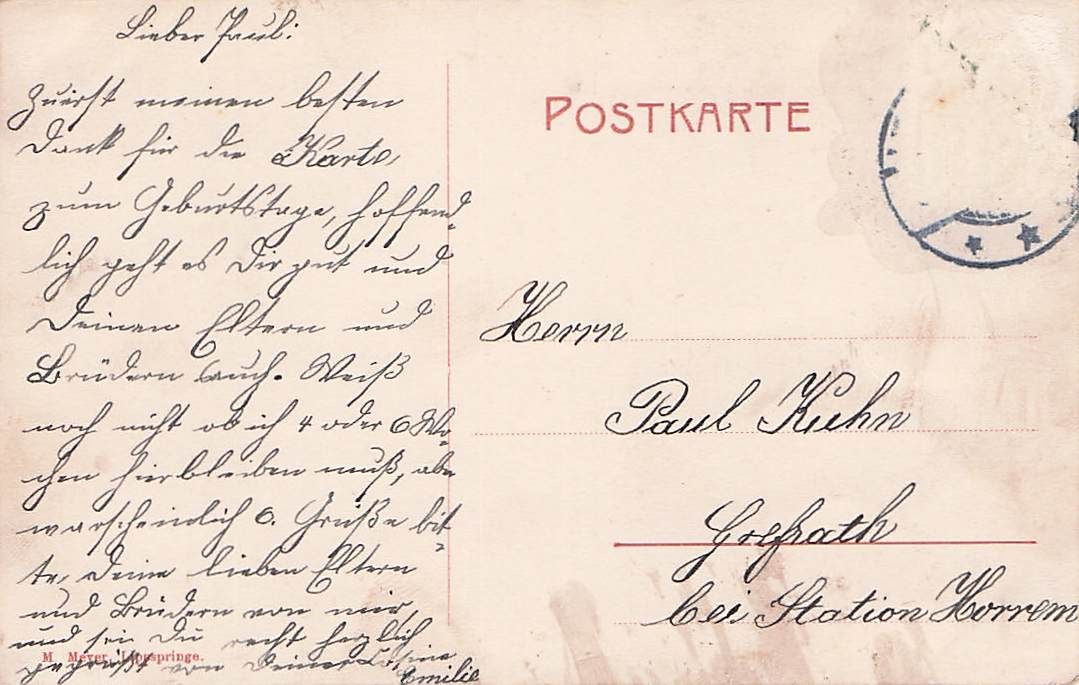 Lieber Paul!
Zuerst meinen besten
Dank für die Karte,
zum Geburtstage, hoffend-
lich geht es Dir gut und
Deinen Eltern und
Brüdern auch. Weiß
noch nicht ob ich 4 oder 6 Wo-
chen hierbleiben muß, aber
warscheinlich 6. Grüße bit-
te, deine lieben Eltern
und Brüdern von mir,
und sei Du recht herzlich
gegrüßt von Deiner Cosine
Emilie
M. Meyer, Lippspringe.
POSTKARTE
Herrn
Paul Kuhn
Grefrath
bei Station Horrem